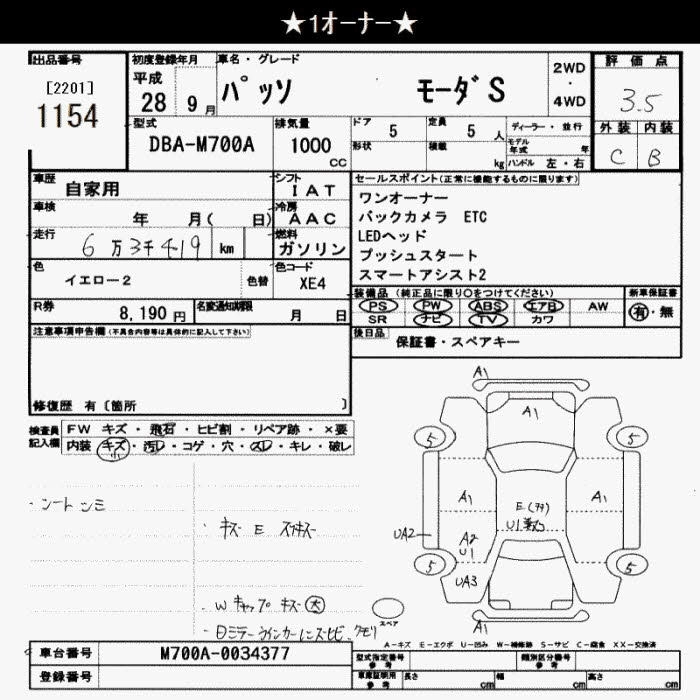 ★1オーナー★
出品番号
[2201]
1154
初度登録年月
平成
28 9月
車名・グレード
パッソ モーダ S
2WD
・
4WD
評価点
3.5
外装 内装
C B
型式
DBA-M700A
排気量
1000
CC
ドア 5
形状
定員 5 人
積載 kg
ディーラー・並行
モデル年式 年
ハンドル 左・右
車歴
自家用
シフト
IAT
車検
年 月( 日)
冷房
AAC
走行
6万3千419 km
燃料
ガソリン
色
イエロー2
色替
色コード
XE4
R券
8,190 円
名変通知期限
月 日
セールスポイント(正常に機能するものに限ります)
ワンオーナー
バックカメラ ETC
LEDヘッド
プッシュスタート
スマートアシスト2
装備品 (純正品に限り○をつけてください)
新車保証書
PS PW ABS エアB AW
SR ナビ TV カワ
有・無
後日品
保証書・スペアキー
注意事項申告欄(不具合内容等は具体的に記入して下さい)
修復歴 有〔箇所 〕
検査員
記入欄
FW キズ・飛石・ヒビ割・リペア跡・×要
内装 キズ・汚レ・コゲ・穴・スレ・キレ・破レ
・シートシミ
・キズ E スリキズ
・Wキャップキズ大
A1
A1
5
5
A1
A1
E
U1
UA2
A2
U1
5
5
UA3
スペア
A1
A-キズ E-エクボ U-凹み W-補修跡 S-サビ C-腐食 XX-交換済
車台番号
M700A-0034377
登録番号
型式指定番号
参考
類別区分番号
参考
車庫証明用
参考
長さ cm
幅 cm
高さ cm